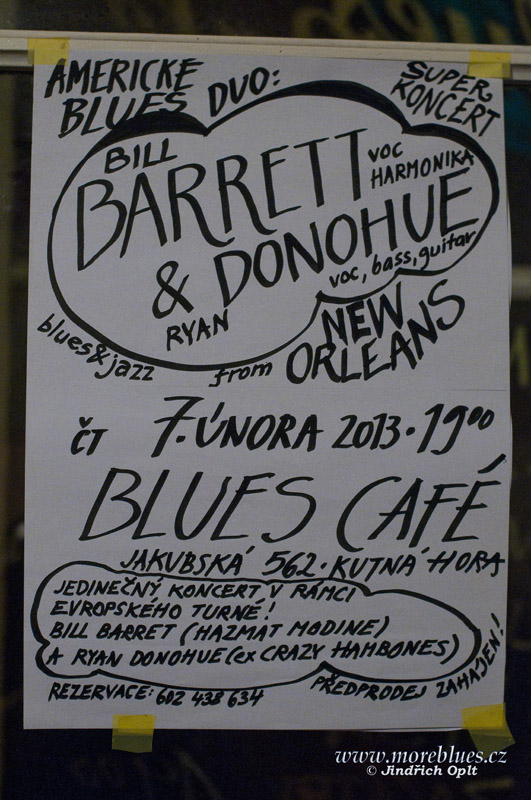 AMERICKE
BLUES DUO:
SUPER.
KONCERT
BILL
BARRETT
voc
HARMONIKA
& DONOHUE
voc, bass, guitar
RYAN
blues & jazz
from NEW
ORLEANS
ČT 7. ÚNORA 2013 · 19⁰⁰
BLUES CAFÉ
JAKUBSKÁ 562 · KUTNÁ HORA
JEDINEČNÝ KONCERT V RÁMCI
EVROPSKÉHO TURNÉ!
BILL BARRET (HAZMAT MODINE)
A RYAN DONOHUE (ex CRAZY HAMBONES)
REZERVACE: 602 438 634
PŘEDPRODEJ ZAHÁJEN!
www.moreblues.cz
© Jindřich Oplt